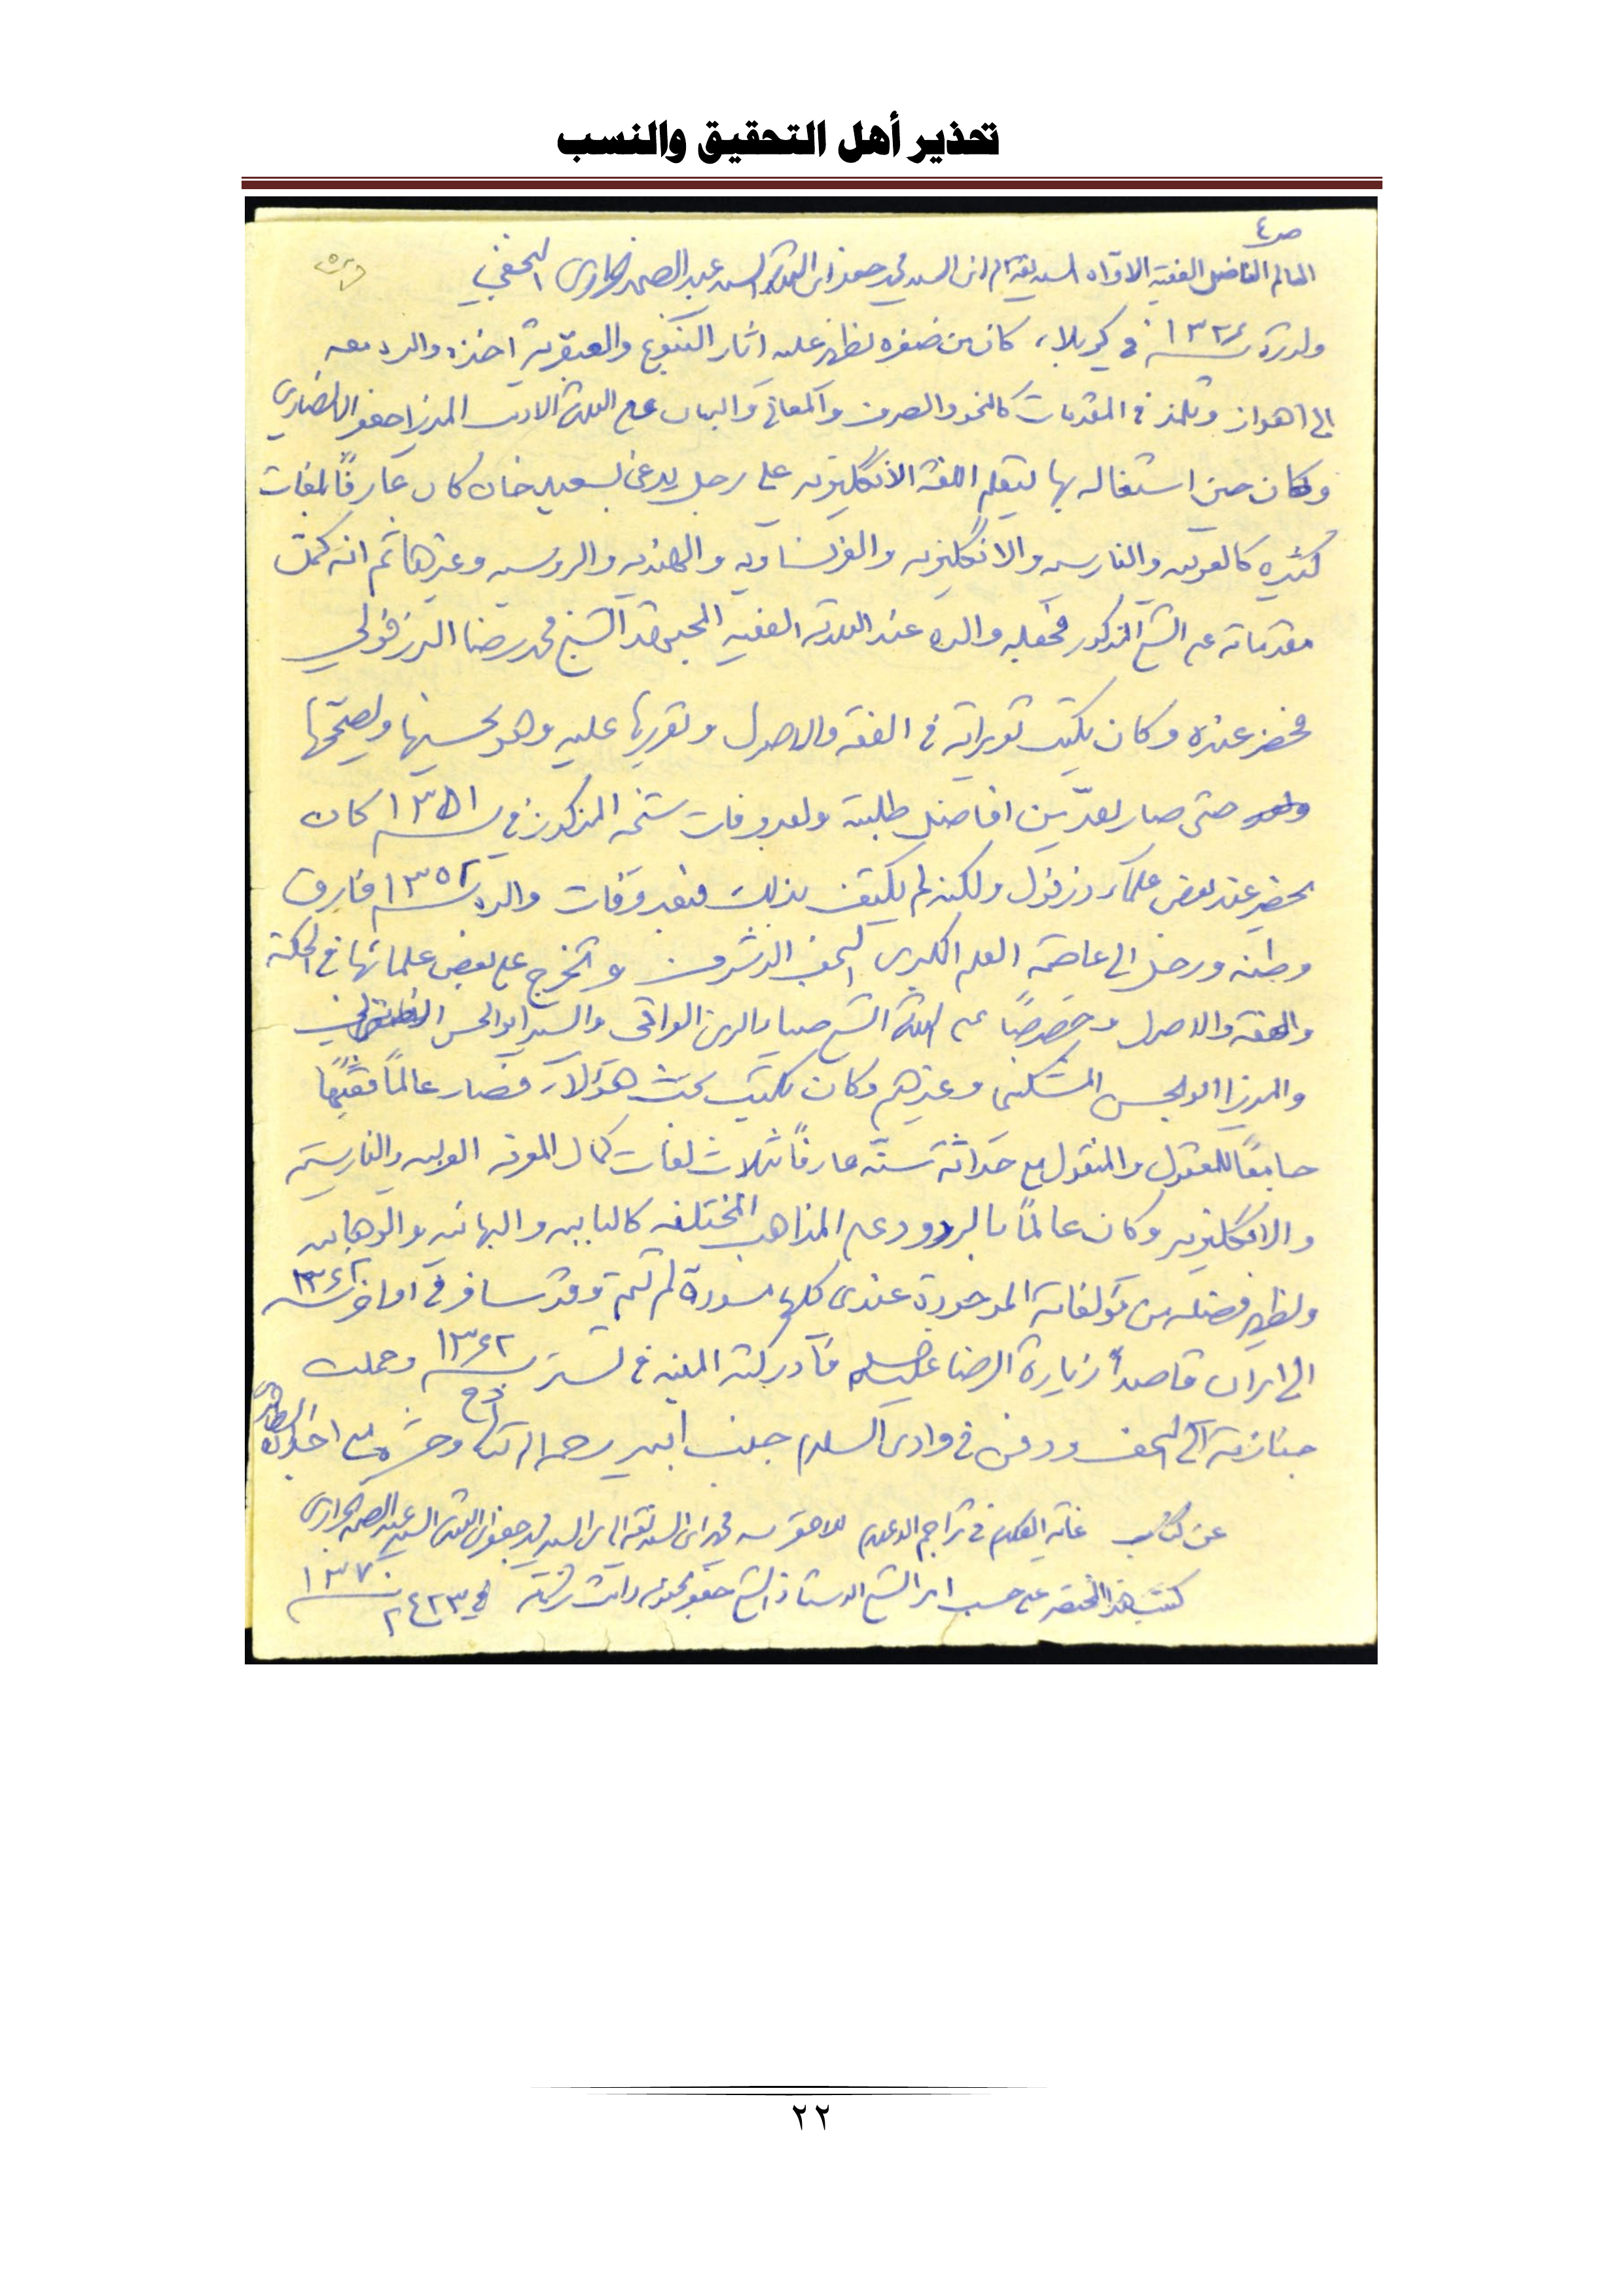 تحذير أهل التحقيق والنسب
ص٤
العالم الفاضل الفقيه السيد ابن السيد محمد جعفر ابن العلامة السيد عبد الصمد الجزائري النجفي
ولد في كربلاء، كان من صغره يظهر عليه اثار النبوغ والعبقرية اخذه والده معه
الى اهواز وتلمذ في المقدمات كالنحو والصرف والمعاني والبيان على العلامة الاديب الميرزا جعفر الانصاري
وكان حين اشتغاله بها يتعلم اللغة الانگليزيه على رجل يدعى بسعيد خان كان عارفًا بلغات
كثيره كالعربيه والفارسيه والانگليزيه والفرنساويه والهنديه والروسيه وغيرها ثم انه كمل
مقدماته على الشيخ المذكور فجعله والده عند العلامة الفقيه المجتهد الشيخ محمد رضا الدزفولي
فحضر عنده وكان يكتب تقريراته في الفقه والاصول ويقررها عليه وهو يحسنها ويصححها
حتى صار يعدّ من افاضل طلبته وبعد وفات شيخه المذكور في ١٣٥١ كان
يحضر عند بعض علماء دزفول ولكنه لم يكتف بذلك فبعد وفات والده ١٣٥٢ فارق
وطنه ورحل الى عاصمة العلم الكبرى النجف الاشرف وتخرج على بعض علمائها في الحكمة
والفقه والاصول وخصوصًا على العلامة الشيخ ضياء الدين العراقي والسيد ابو الحسن
والميرزا ابو الحسن المشكيني وغيرهم وكان يكتب بحث هؤلاء فصار عالمًا فقيهًا
جامعًا للمعقول والمنقول مع حداثة سنّه عارفًا بثلاث لغات كمال المعرفه العربيه والفارسيه
والانگليزيه وكان عالمًا بالردود على المذاهب المختلفه كالبابيه والبهائيه والوهابيه
ويظهر فضله من مؤلفاته الموجودة عندي كلها مسودة لم تتم وقد سافر في اواخر
الى ايران قاصدًا زيارة الرضا عليه السلام فأدركته المنيه في تستر ١٣٦٢ وحملت
جنازته الى النجف ودفن في وادي السلام جنب ابيه رحمه الله تعالى وحشره مع اجداده
عن كتاب غاية المرام في تراجم الاعلام للاحقر محمد ابن السيد ابن السيد محمد جعفر ابن العلامة السيد عبد الصمد الجزائري
كتبت هذا المختصر على حسب امر الشيخ الاستاذ الشيخ جعفر
١٣٧٠
٢٢